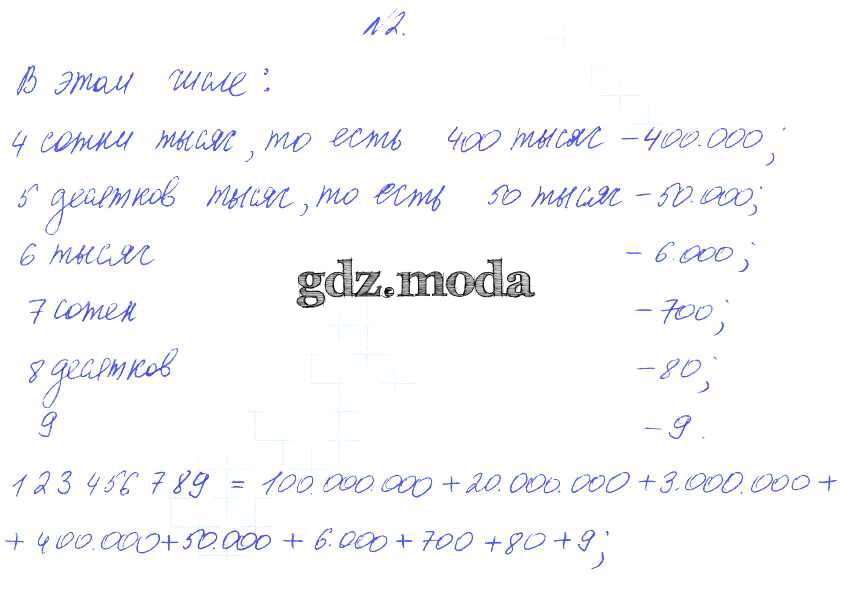 №2.
В этом числе:
4 сотни тысяч, то есть 400 тысяч – 400.000;
5 десятков тысяч, то есть 50 тысяч – 50.000;
6 тысяч – 6.000;
gdz.moda
7 сотен – 700;
8 десятков – 80;
9 – 9.
123 456 789 = 100.000.000 + 20.000.000 + 3.000.000 +
+ 400.000 + 50.000 + 6.000 + 700 + 80 + 9;